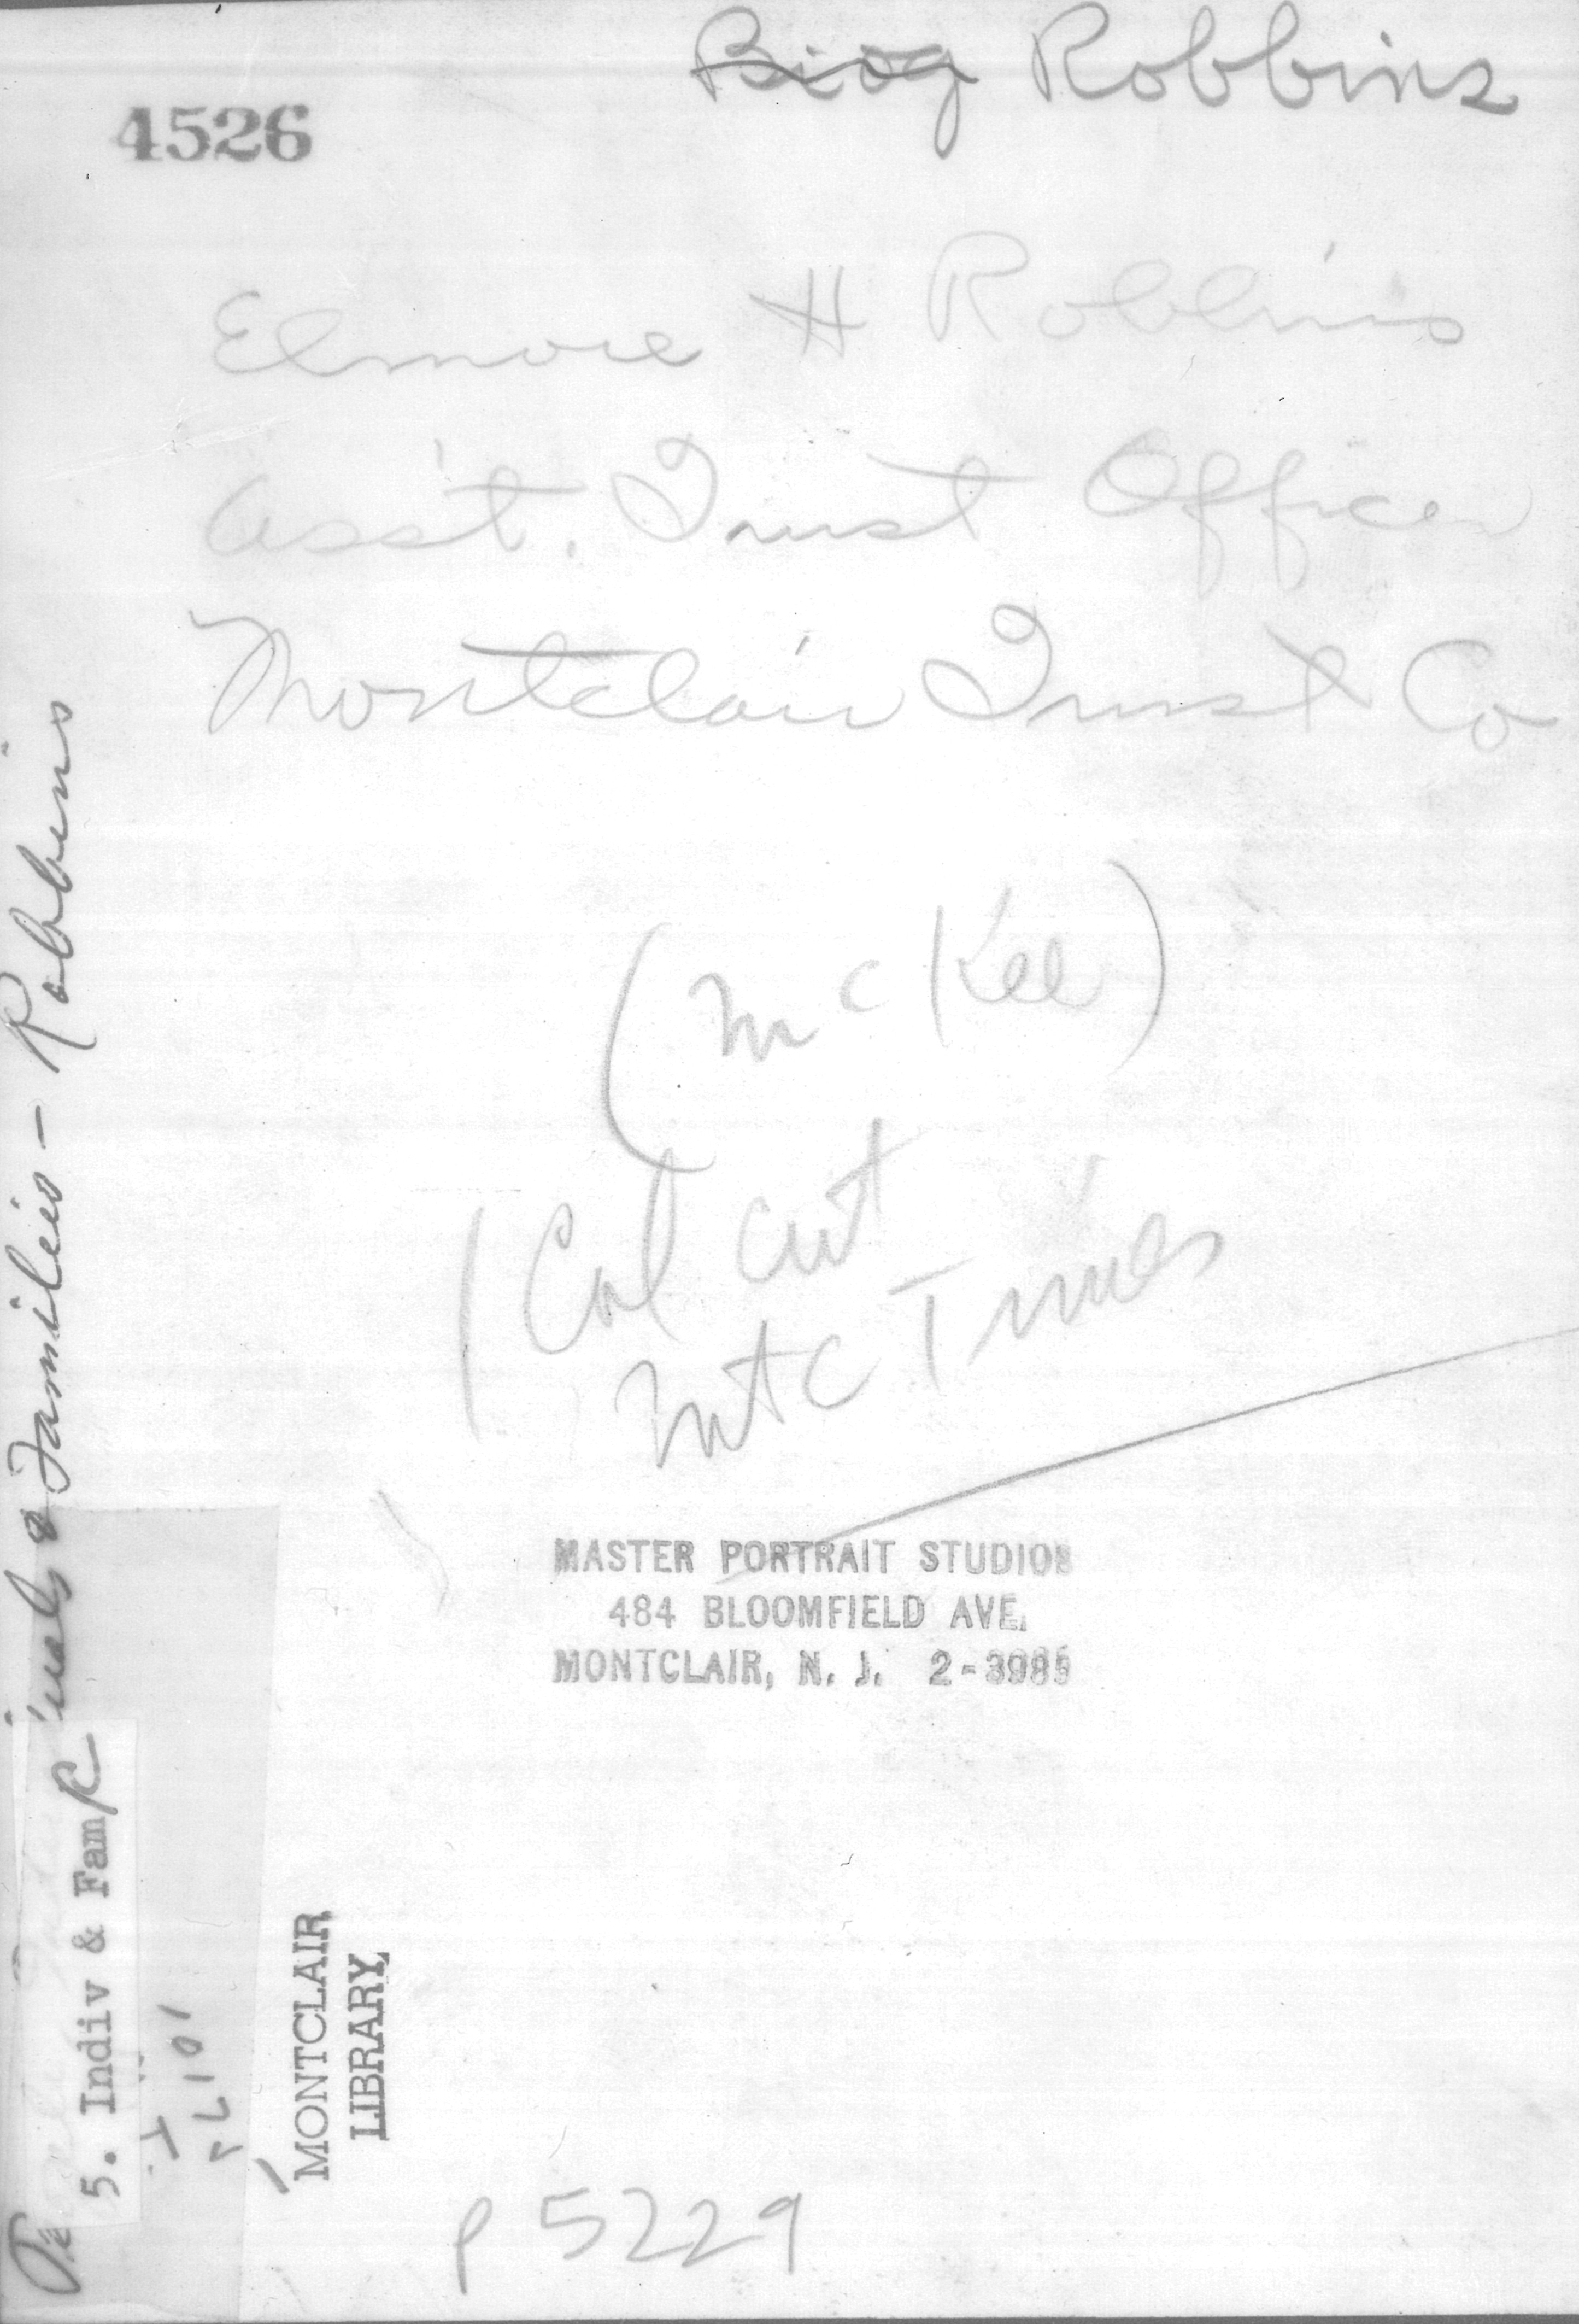 Biog Robbins
4526
Elmore H Robbins
Ass't. Trust Officer
Montclair Trust Co
(McKee)
(Col cut
Mtc Times
MASTER PORTRAIT STUDIOS
484 BLOOMFIELD AVE.
MONTCLAIR, N. J. 2-3985
& Families - Robbins
5. Indiv & Fam R
MONTCLAIR
LIBRARY
P 5229